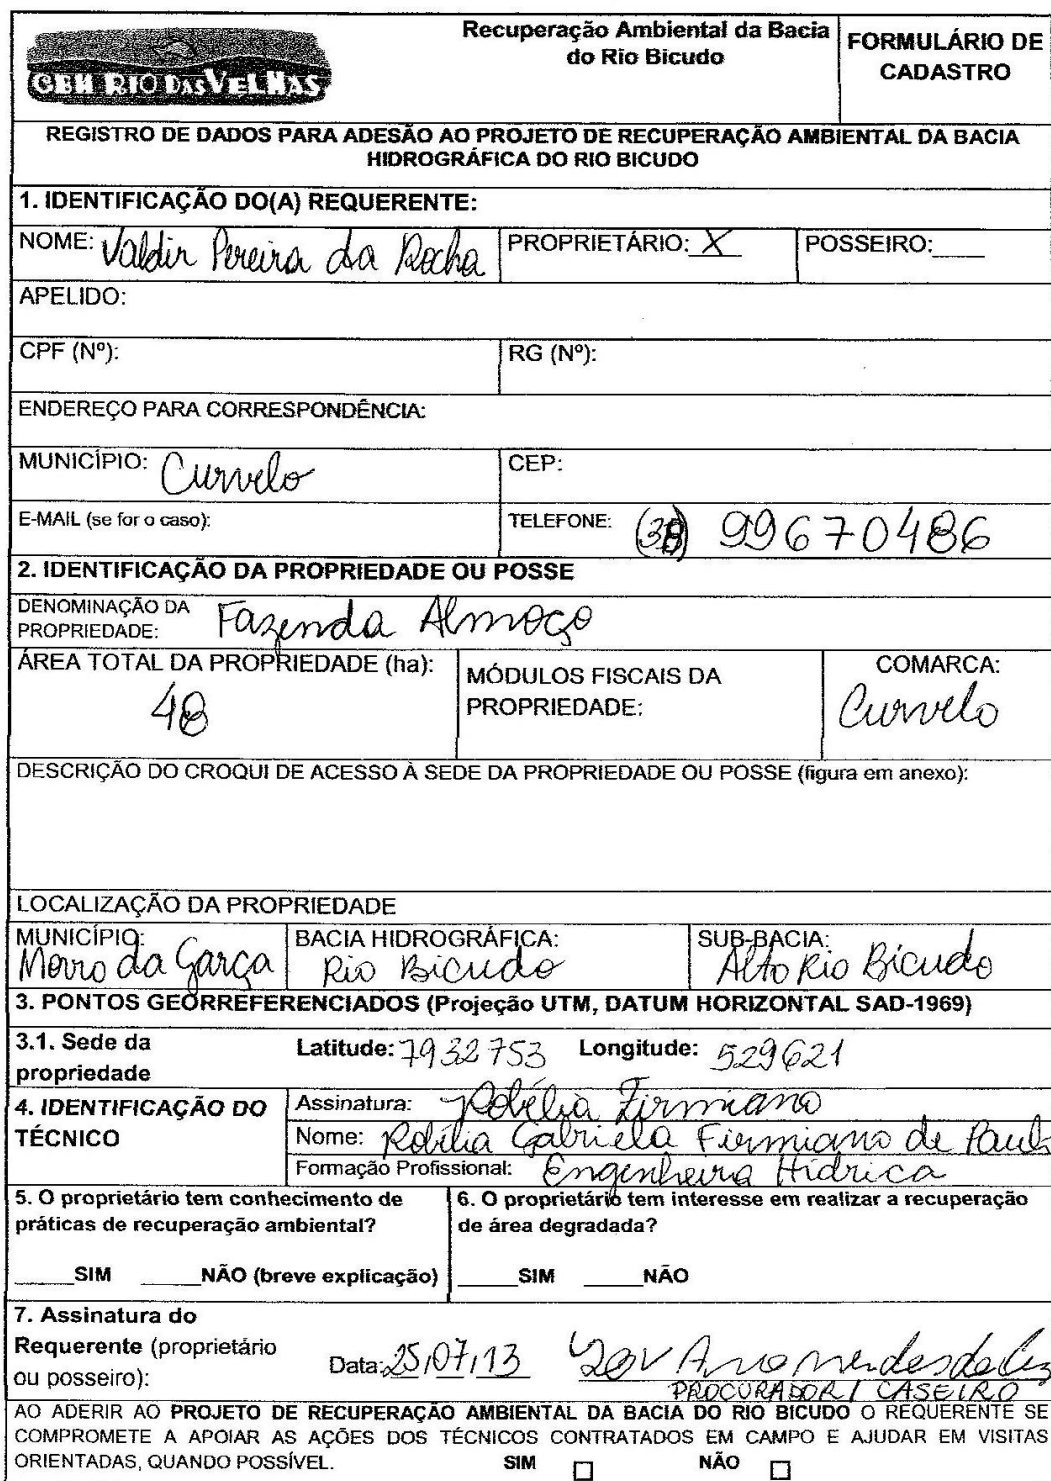 CBH RIO DAS VELHAS
Recuperação Ambiental da Bacia
do Rio Bicudo
FORMULÁRIO DE
CADASTRO
REGISTRO DE DADOS PARA ADESÃO AO PROJETO DE RECUPERAÇÃO AMBIENTAL DA BACIA
HIDROGRÁFICA DO RIO BICUDO
1. IDENTIFICAÇÃO DO(A) REQUERENTE:
NOME: Valdir Pereira da Rocha PROPRIETÁRIO: X POSSEIRO:____
APELIDO:
CPF (Nº): RG (Nº):
ENDEREÇO PARA CORRESPONDÊNCIA:
MUNICÍPIO: Curvelo CEP:
E-MAIL (se for o caso): TELEFONE: (38) 99670486
2. IDENTIFICAÇÃO DA PROPRIEDADE OU POSSE
DENOMINAÇÃO DA
PROPRIEDADE: Fazenda Almoço
ÁREA TOTAL DA PROPRIEDADE (ha):
48
MÓDULOS FISCAIS DA
PROPRIEDADE:
COMARCA:
Curvelo
DESCRIÇÃO DO CROQUI DE ACESSO À SEDE DA PROPRIEDADE OU POSSE (figura em anexo):
LOCALIZAÇÃO DA PROPRIEDADE
MUNICÍPIO:
Morro da Garça
BACIA HIDROGRÁFICA:
Rio Bicudo
SUB-BACIA:
Alto Rio Bicudo
3. PONTOS GEORREFERENCIADOS (Projeção UTM, DATUM HORIZONTAL SAD-1969)
3.1. Sede da
propriedade
Latitude: 7932753 Longitude: 529621
4. IDENTIFICAÇÃO DO
TÉCNICO
Assinatura: Robélia Firmiano
Nome: Robélia Gabriela Firmiano de Paula
Formação Profissional: Engenheira Hídrica
5. O proprietário tem conhecimento de
práticas de recuperação ambiental?
_____SIM _____NÃO (breve explicação)
6. O proprietário tem interesse em realizar a recuperação
de área degradada?
_____SIM _____NÃO
7. Assinatura do
Requerente (proprietário
ou posseiro):
Data: 25/07/13
PROCURADOR / CASEIRO
AO ADERIR AO PROJETO DE RECUPERAÇÃO AMBIENTAL DA BACIA DO RIO BICUDO O REQUERENTE SE
COMPROMETE A APOIAR AS AÇÕES DOS TÉCNICOS CONTRATADOS EM CAMPO E AJUDAR EM VISITAS
ORIENTADAS, QUANDO POSSÍVEL. SIM ☐ NÃO ☐